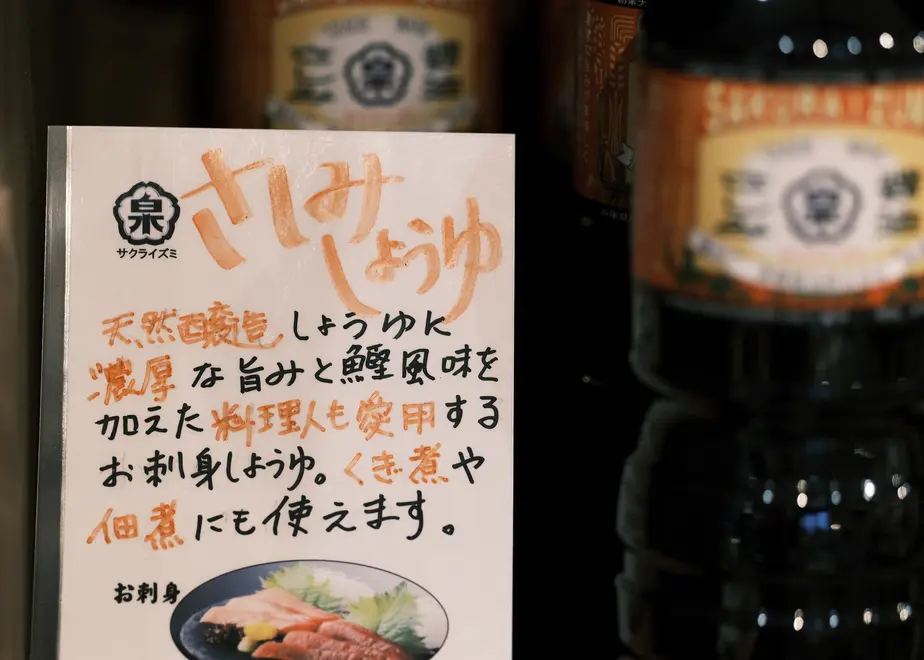 泉
サクライズミ
さしみ
しょうゆ
天然醸造しょうゆに
濃厚な旨みと鰹風味を
加えた料理人も愛用する
お刺身しょうゆ。くぎ煮や
佃煮にも使えます。
お刺身
泉
SAKURA
泉